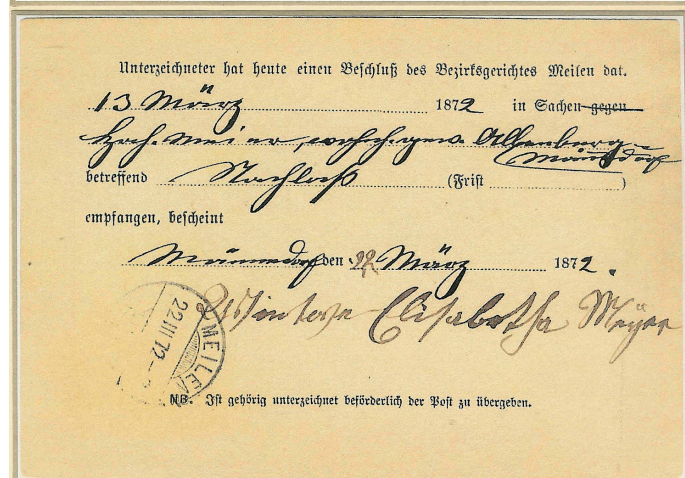 Unterzeichneter hat heute einen Beschluß des Bezirksgerichtes Meilen dat.
13 März 1872 in Sachen gegen
Hch. Meier, Allenberg-
Männdorf
betreffend Nachlaß (Frist )
empfangen, bescheint
Männedorf den 22 März 1872.
Elisabetha Meyer
MEILEN
22.III.72
NB. Ist gehörig unterzeichnet beförderlich der Post zu übergeben.